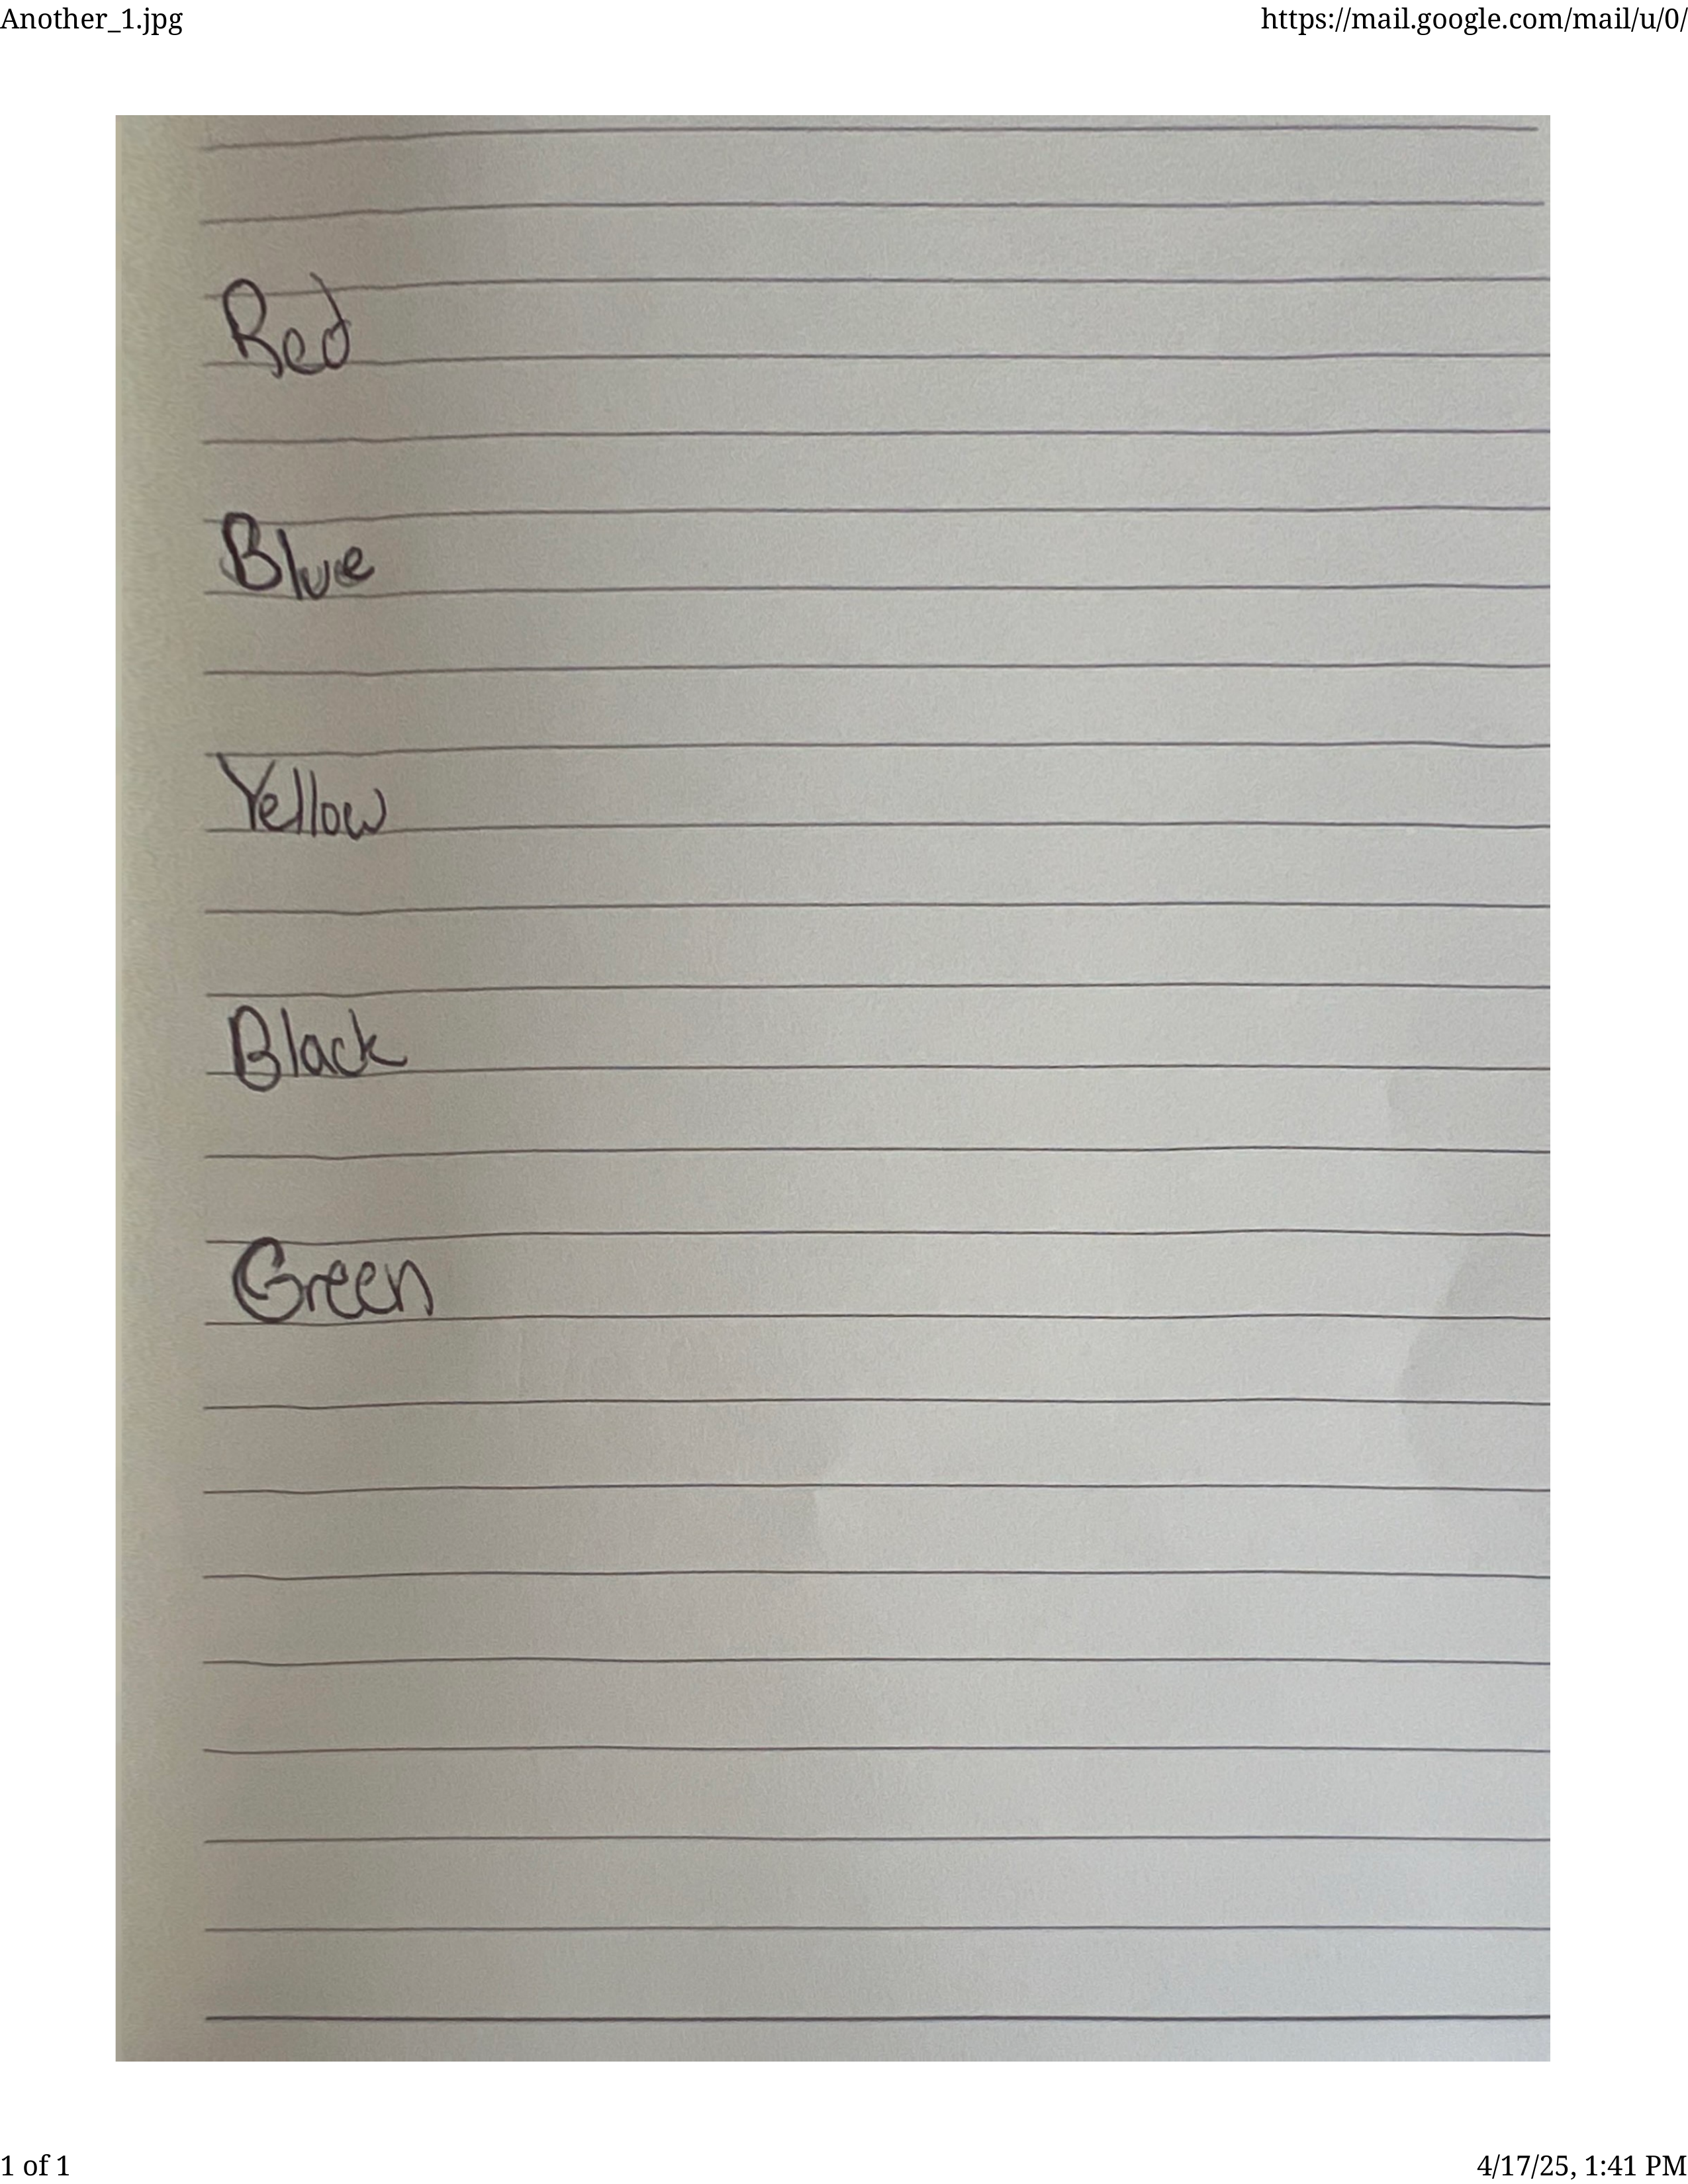 Another_1.jpg https://mail.google.com/mail/u/0/
Red
Blue
Yellow
Black
Green
1 of 1 4/17/25, 1:41 PM